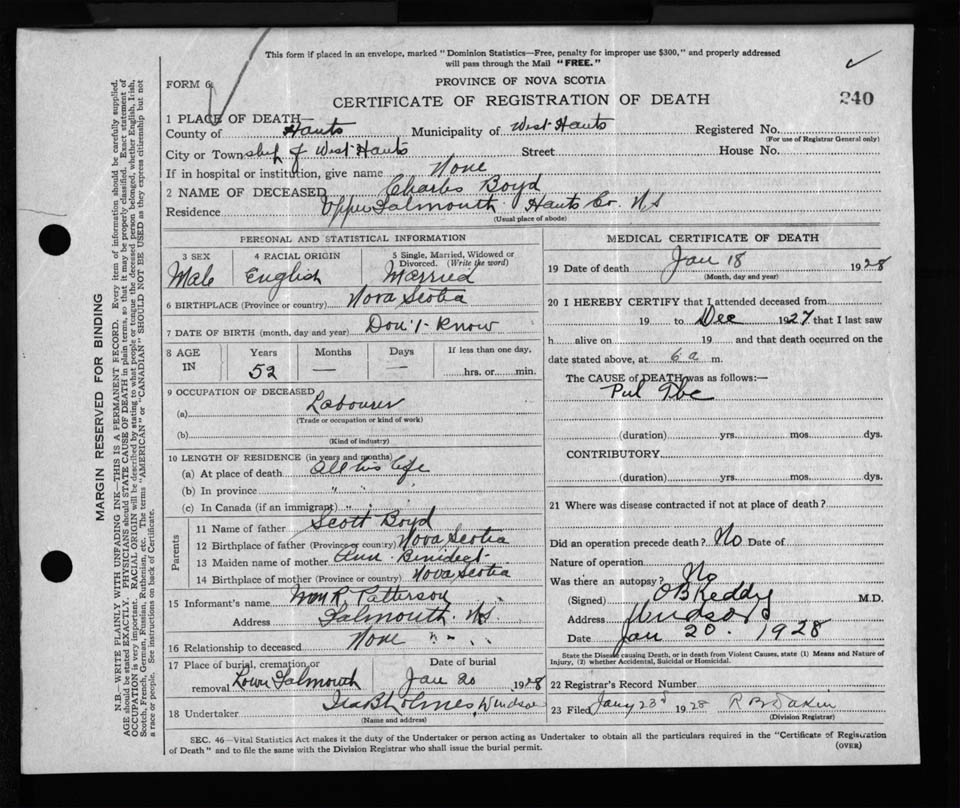 This form if placed in an envelope, marked "Dominion Statistics—Free, penalty for improper use $300," and properly addressed
will pass through the Mail "FREE."
FORM 6
PROVINCE OF NOVA SCOTIA
CERTIFICATE OF REGISTRATION OF DEATH
240
1 PLACE OF DEATH—
County of Hants Municipality of West Hants Registered No.
(For use of Registrar General only)
City or Township of West Hants Street House No.
If in hospital or institution, give name None
2 NAME OF DECEASED Charles Boyd
Residence Upper Falmouth Hants Co. N.S
(Usual place of abode)
PERSONAL AND STATISTICAL INFORMATION
3 SEX 4 RACIAL ORIGIN 5 Single, Married, Widowed or Divorced. (Write the word)
Male English Married
6 BIRTHPLACE (Province or country) Nova Scotia
7 DATE OF BIRTH (month, day and year) Don't Know
8 AGE IN Years Months Days If less than one day,
52 — — hrs. or min.
9 OCCUPATION OF DECEASED
(a) Labourer
(Trade or occupation or kind of work)
(b)
(Kind of industry)
10 LENGTH OF RESIDENCE (in years and months)
(a) At place of death All his life
(b) In province " " "
(c) In Canada (if an immigrant) " "
Parents
11 Name of father Scott Boyd
12 Birthplace of father (Province or country) Nova Scotia
13 Maiden name of mother Ann Benidect
14 Birthplace of mother (Province or country) Nova Scotia
15 Informant's name Wm R. Patterson
Address Falmouth. N.S
16 Relationship to deceased None
17 Place of burial, cremation or Date of burial
removal Lower Falmouth Jan 20 1928
18 Undertaker Holmes, Windsor
(Name and address)
MEDICAL CERTIFICATE OF DEATH
19 Date of death Jan 18 1928
(Month, day and year)
20 I HEREBY CERTIFY that I attended deceased from
19 to Dec 1927 that I last saw
h alive on 19 and that death occurred on the
date stated above, at 6 a m.
The CAUSE of DEATH was as follows:—
Pul Tbc
(duration) yrs. mos. dys.
CONTRIBUTORY
(duration) yrs. mos. dys.
21 Where was disease contracted if not at place of death?
Did an operation precede death? No Date of
Nature of operation
Was there an autopsy? No
(Signed) O B Keddy M.D.
Address Windsor
Date Jan 20. 1928
State the Disease causing Death, or in death from Violent Causes, state (1) Means and Nature of
Injury, (2) whether Accidental, Suicidal or Homicidal.
22 Registrar's Record Number
23 Filed Jany 23d 1928 R B Dakin
(Division Registrar)
SEC. 46—Vital Statistics Act makes it the duty of the Undertaker or person acting as Undertaker to obtain all the particulars required in the "Certificate of Registration
of Death" and to file the same with the Division Registrar who shall issue the burial permit.
(OVER)
MARGIN RESERVED FOR BINDING
N.B.—WRITE PLAINLY WITH UNFADING INK—THIS IS A PERMANENT RECORD. Every item of information should be carefully supplied.
AGE should be stated EXACTLY. PHYSICIANS should STATE CAUSE OF DEATH in plain terms, so that it may be properly classified. Exact statement of
OCCUPATION is very important. RACIAL ORIGIN will be described by stating to what people or tongue the deceased person belonged, whether English, Irish,
Scotch, French, German, Russian, Ruthenian, etc. The terms "AMERICAN" or "CANADIAN" SHOULD NOT BE USED as they express citizenship but not
a race or people. See instructions on back of Certificate.